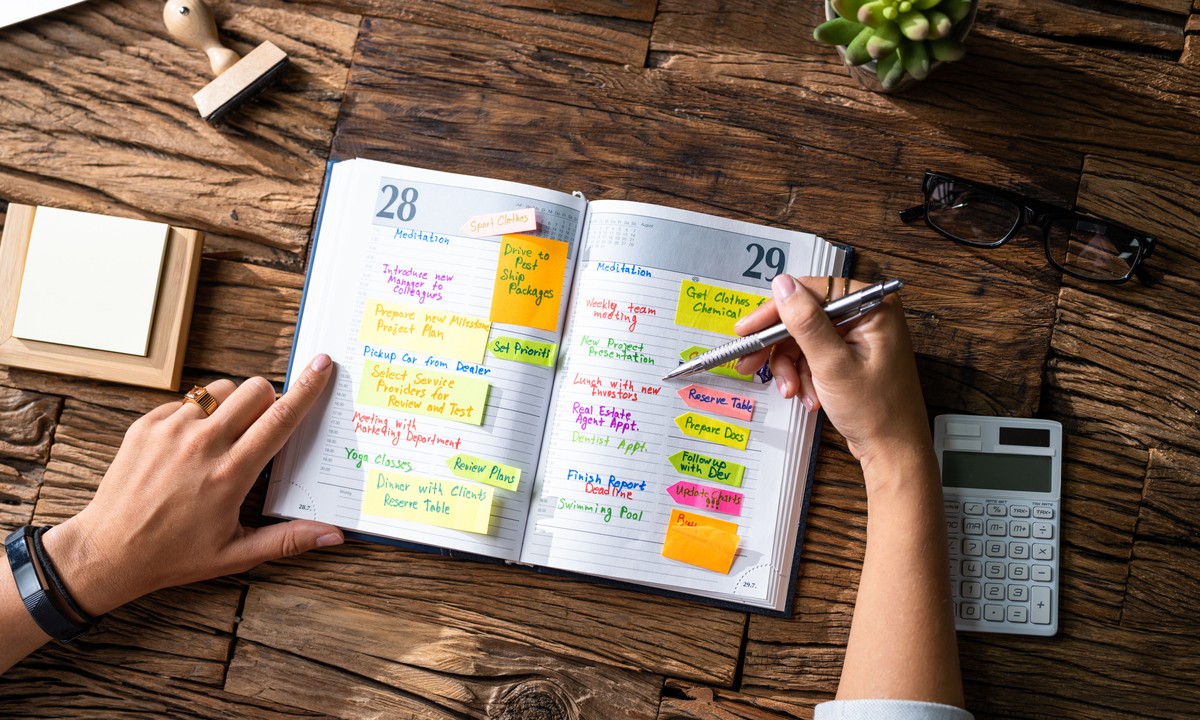 28
Sport Clothes
Meditation
Drive to
Post
Ship
Packages
Introduce new
Manager to
Colleagues
Prepare new Milestone
Project Plan
Set Prioriti
Pickup Car from Dealer
Select Service
Providers for
Review and Test
Meeting with
Marketing Department
Yoga Classes
Review Plans
Dinner with Clients
Reserve Table
28.7.
29
August
Meditation
Get Clothes
Chemical
Weekly team
meeting
New Project
Presentation
Lunch with new
Investors
Reserve Table
Real Estate
Agent Appt.
Prepare Docs
Dentist Appt.
Followup
with Dev
Finish Report
Deadline
Update Charts
!!!
Swimming Pool
29.7.
%
7
8
9
×
4
5
6
-
1
2
3
+
0
.
=